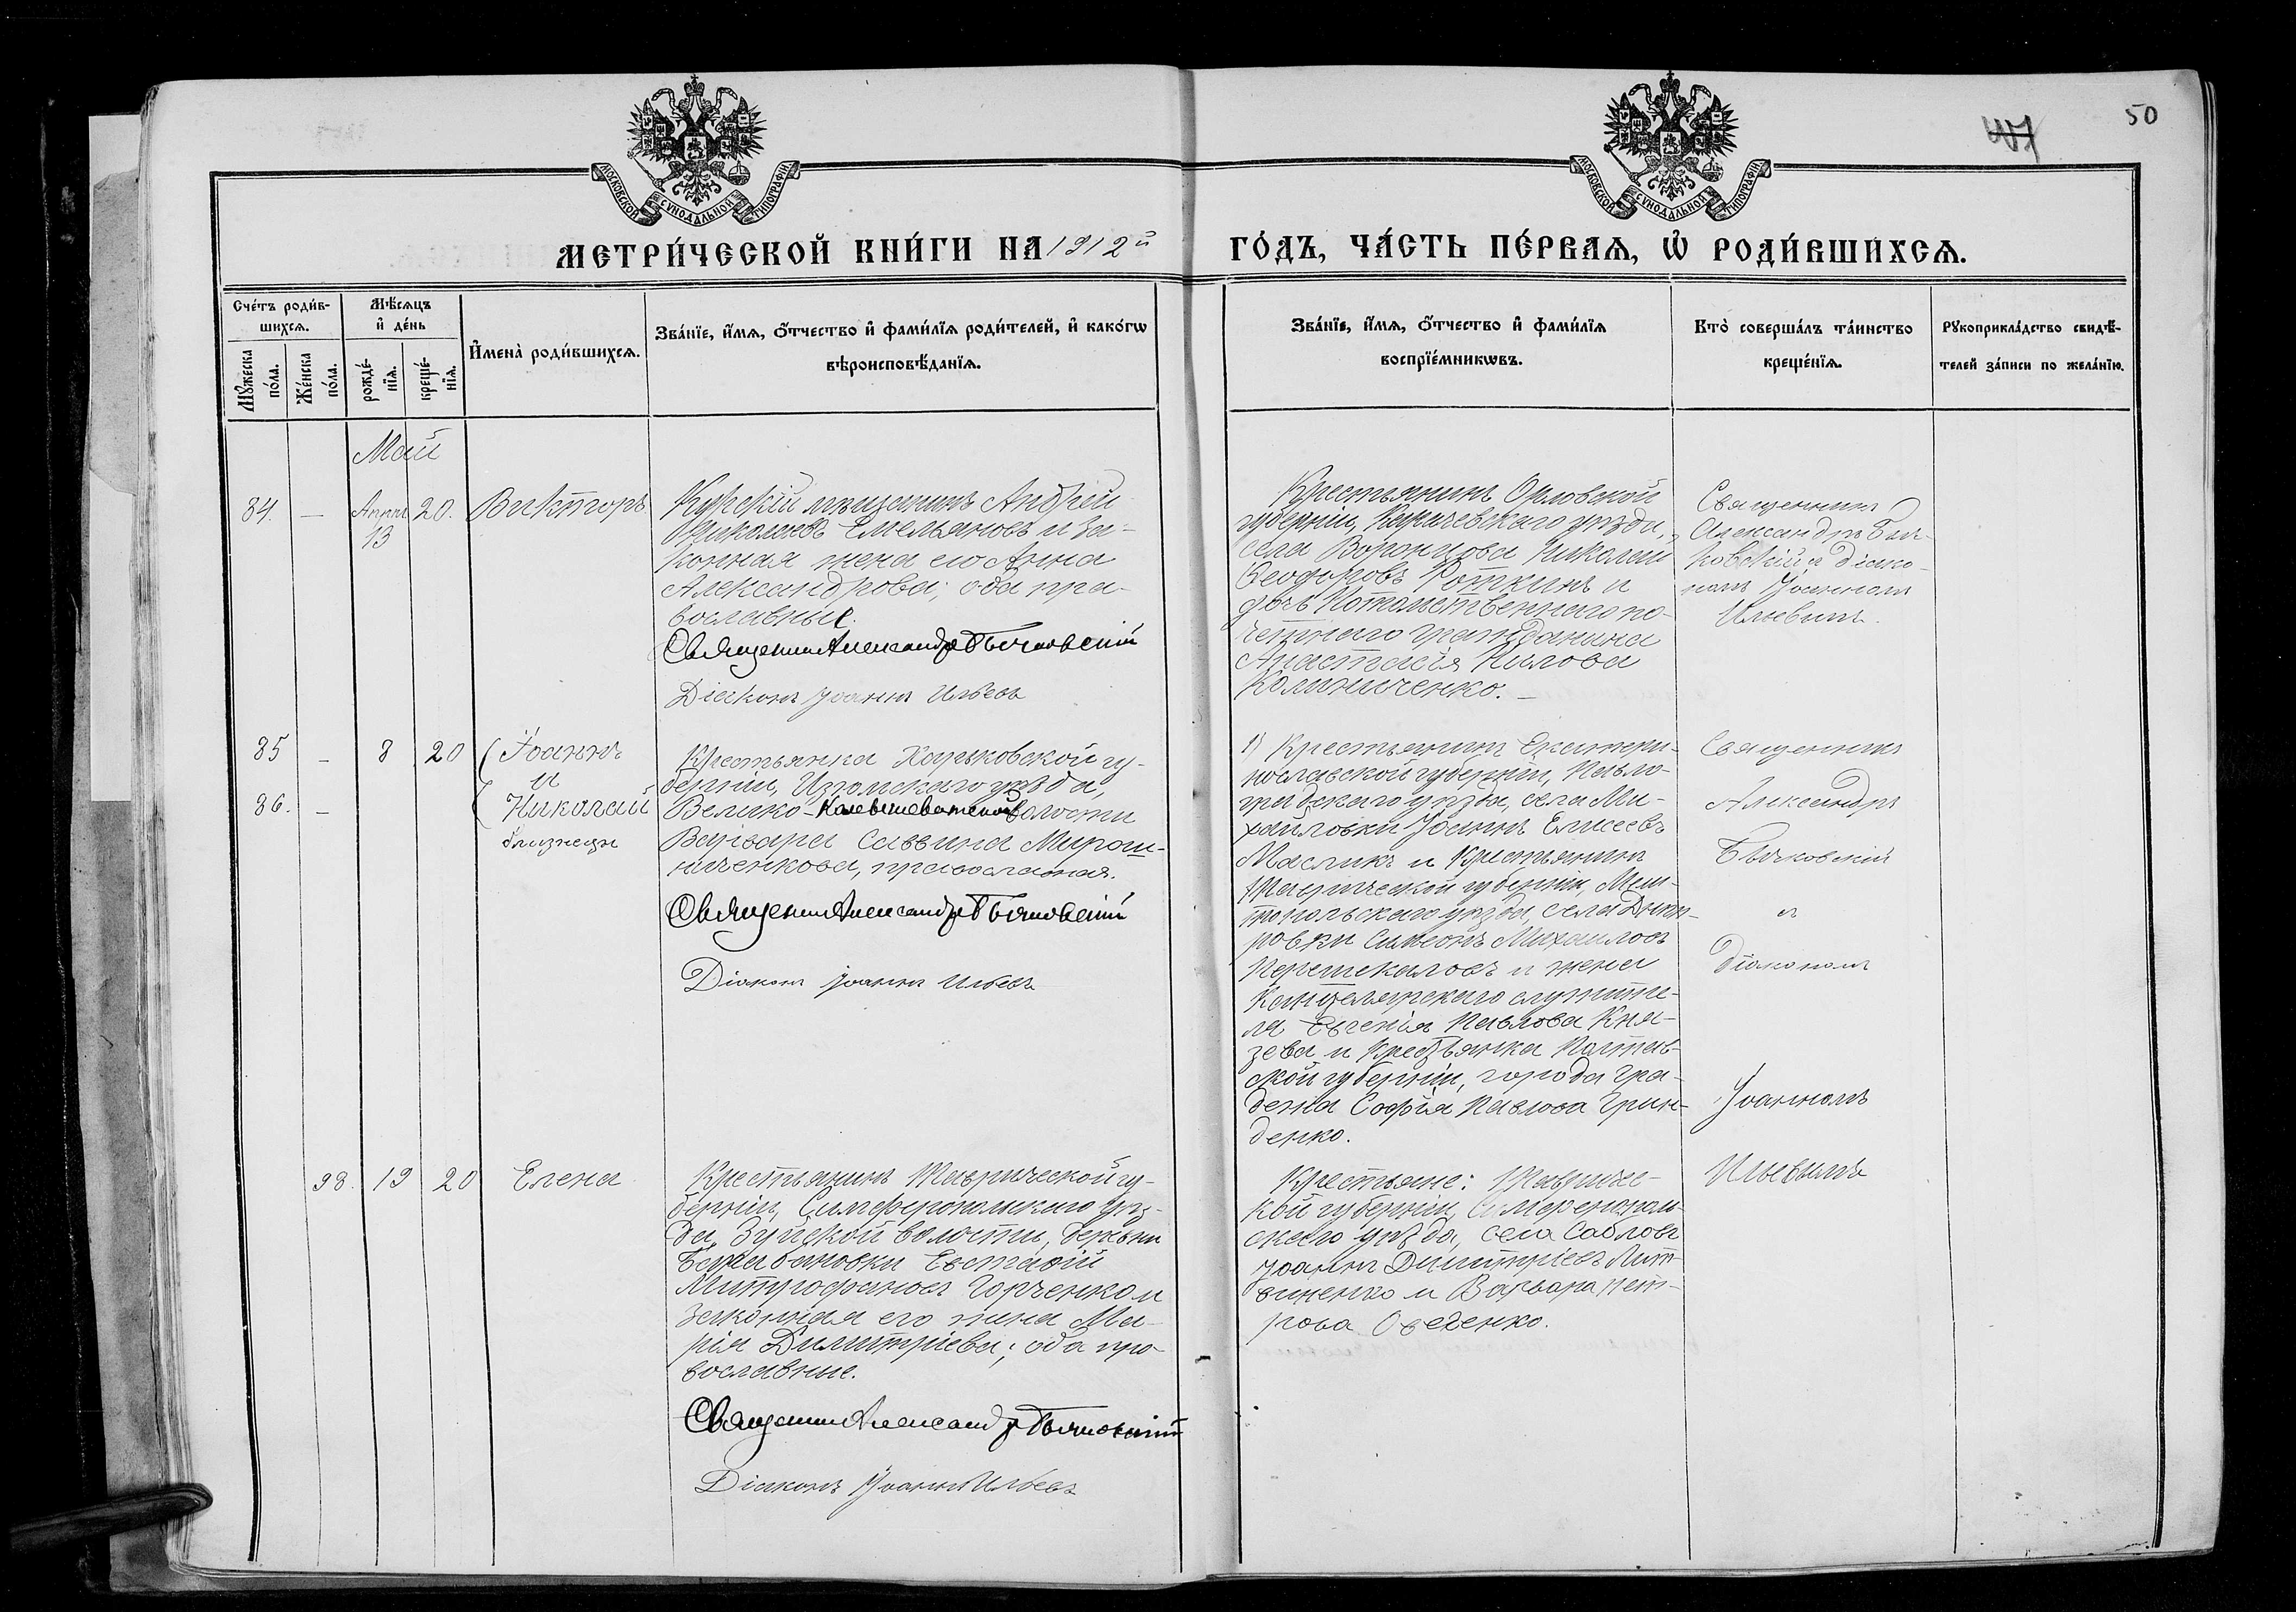 50
МОСКОВСКОЙ СѴНОДАЛЬНОЙ ТИПОГРАФІИ
МОСКОВСКОЙ СѴНОДАЛЬНОЙ ТИПОГРАФІИ
МЕТРИ́ЧЕСКОЙ КНИ́ГИ НА 1912й ГО́ДЪ, ЧА́СТЬ ПЕ́РВАѦ, Ѡ҆ РОДИ́ВШИХСѦ.
Сче́тъ роди́в-
шихсѧ.
Мꙋ́жеска
по́ла.
Же́нска
по́ла.
Мѣ́сѧцъ
и҆ де́нь
рожде́-
нїѧ.
креще́-
нїѧ.
И҆мена̀ роди́вшихсѧ.
Зва́нїе, и҆́мѧ, ѻ҆́тчество и҆ фами́лїѧ роди́телей, и҆ како́гѡ
вѣроисповѣ́данїѧ.
Зва́нїе, и҆́мѧ, ѻ҆́тчество и҆ фами́лїѧ
воспрїе́мникѡвъ.
Кто̀ соверша́лъ та́инство
креще́нїѧ.
Рꙋкоприкла́дство свидѣ́-
телей за́писи по жела́нїю.
Май
84. — Апрѣл 13 20. Викторъ
Курскій мѣщанинъ Андрей
Николаевъ Емельяновъ и за-
конная жена его Анна
Александрова; оба пра-
вославные.
Священник Александр Бычковскій
Діаконъ Іоаннъ Ильевъ
Крестьянинъ Орловской
губерніи, Карачевскаго уѣзда,
села Воронцова Николай
Ѳеодоровъ Роткинъ и
дочь Потомственнаго по-
четнаго гражданина
Анастасія Нилова
Колиниченко. —
Священникъ
Александръ Быч-
ковскій и діако-
номъ Іоанномъ
Ильевымъ.
85 — 8 20 Іоаннъ
и
86. — Николай
близнецы
Крестьянка Харьковской гу-
берніи, Изюмскаго уѣзда,
Велико-Камышевахской волости
Варвара Саввина Мирош-
ниченкова, православная.
Священник Александр Бычковскій
Діаконъ Іоаннъ Ильевъ
1) Крестьянинъ Екатери-
нославской губерніи, Павло-
градскаго уѣзда, села Ми-
хайловки Іоаннъ Елисеевъ
Масликъ и Крестьянинъ
Таврической губерніи Мели-
топольскаго уѣзда, села Днѣп-
ровки Симеонъ Михаиловъ
Перешкаловъ и жена
Канцелярскаго служите-
ля Евгенія Павлова Кня-
зева и Крестьянка Полтав-
ской губерніи, города Гра-
дена Софія Павлова Грин-
денко.
Священникъ
Александръ
Бычковскій
и
діакономъ
Іоанномъ
Ильевымъ
98. 19 20 Елена
Крестьянинъ Таврической гу-
берніи, Симферопольскаго уѣз-
да, Зуйской волости, деревни
Бешарановки Евстафій
Митрофановъ Горченко и
законная его жена Ма-
рія Димитріева; оба пра-
вославные.
Священник Александр Бычковскій
Діаконъ Іоаннъ Ильевъ
Крестьяне: Тавриче-
кой губерніи, Симферополь-
скаго уѣзда, села Сабловъ
Іоаннъ Димитріевъ Лит-
виненко и Варвара Пет-
рова Овеченко.